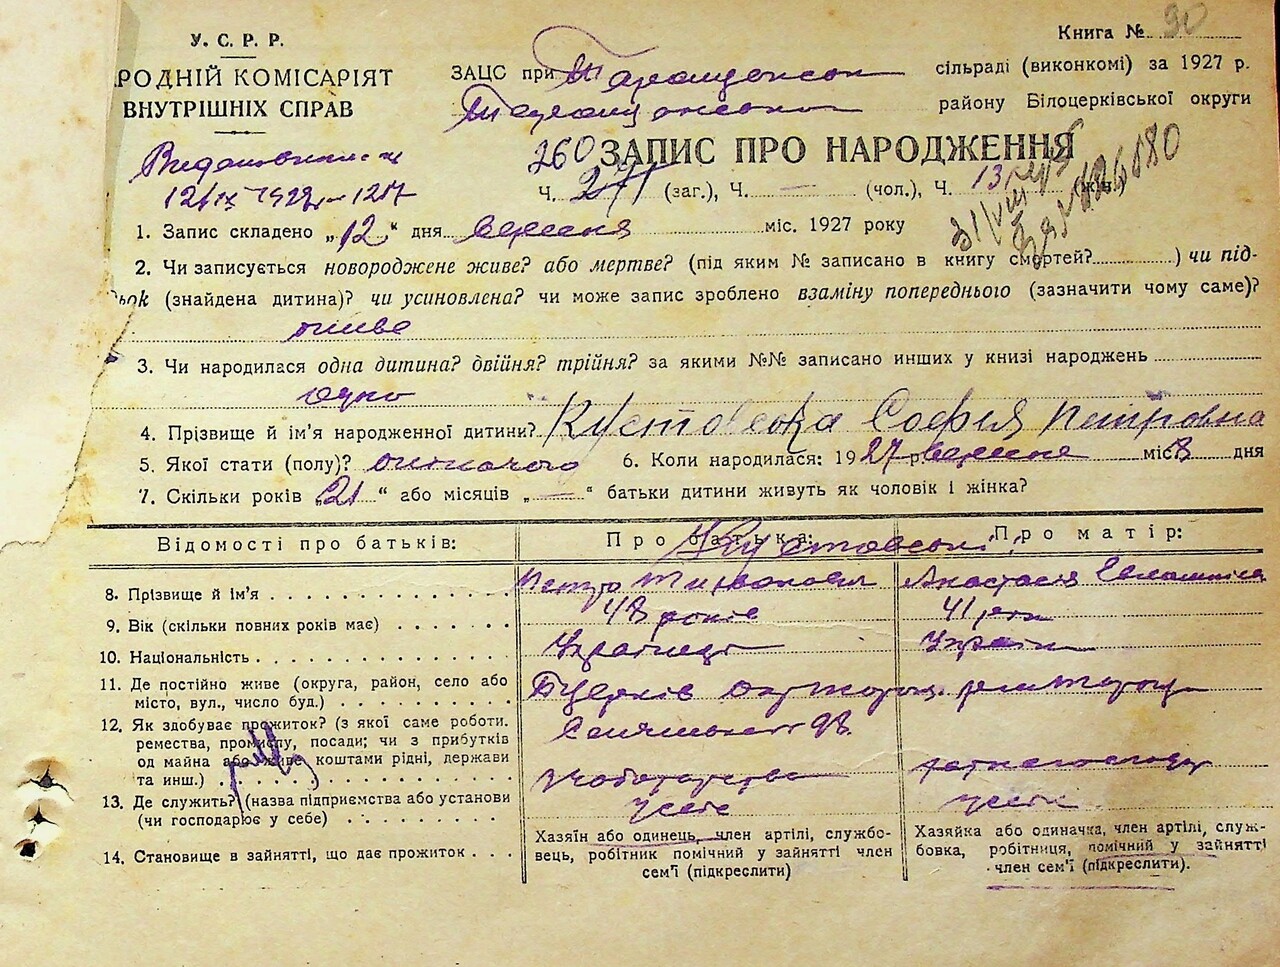 У. С. Р. Р.
Книга № 90
РОДНІЙ КОМІСАРІЯТ
ВНУТРІШНІХ СПРАВ
ЗАЦС при Таращанськ сільраді (виконкомі) за 1927 р.
району Білоцерківської округи
12/IX 1927
260
ЗАПИС ПРО НАРОДЖЕННЯ
Ч. 271 (заг.), Ч. — (чол.), Ч. 131
1. Запис складено „12“ дня вересня міс. 1927 року
2. Чи записується новороджене живе? або мертве? (під яким № записано в книгу смортей?) чи під-
ьок (знайдена дитина)? чи усиновлена? чи може запис зроблено взаміну попереднього (зазначити чому саме)?
живе
3. Чи народилася одна дитина? двійня? трійня? за якими №№ записано инших у книзі народжень
одно
4. Прізвище й ім'я народженної дитини? Кустовська Софія Петровна
5. Якої стати (полу)? жіночого 6. Коли народилася: 1927 р. вересня міс. 8 дня
7. Скільки років „21“ або місяців „—“ батьки дитини живуть як чоловік і жінка?
Відомості про батьків: Про батька: Про матір:
Кустовські
8. Прізвище й ім'я Петро Анастасія
9. Вік (скільки повних років має) 48 років 41 рік
10. Національність Українець Україн
11. Де постійно живе (округа, район, село або
місто, вул., число буд.)
12. Як здобуває прожиток? (з якої саме роботи.
ремества, промислу, посади; чи з прибутків
од майна або живе коштами рідні, держави
та инш.) хлоборобство
13. Де служить? (назва підприємства або установи
(чи господарює у себе) у себе у себе
14. Становище в зайнятті, що дає прожиток
Хазяїн або одинець, член артілі, службо-
вець, робітник помічний у зайнятті член
сем'ї (підкреслити)
Хазяйка або одиначка, член артілі, служ-
бовка, робітниця, помічний у зайнятті
член сем'ї (підкреслити).